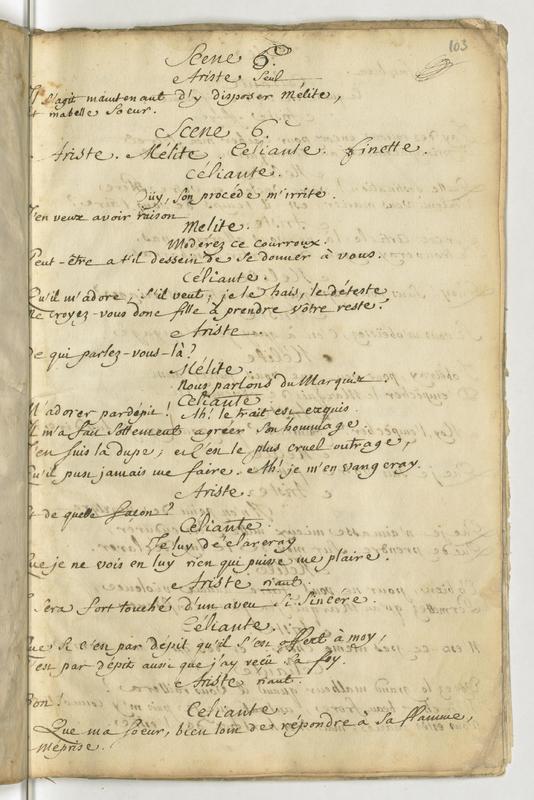 103
Scene 6.e
Ariste Seul,
Il s'agit maintenant d'y disposer Melite,
Et mabelle Soeur.
Scene 6.
Ariste. Mélite. Céliante. Finette.
Céliante.
Oüy, son procédé m'irrite.
J'en veux avoir raison
Melite.
Moderez ce courroux.
Peut-être a t'il dessein de se donner à vous.
Céliante.
Qu'il m'adore, s'il veut; je le hais, le déteste
Me croyez-vous donc fille à prendre vôtre reste.
Ariste.
De qui parlez-vous-là?
Mélite.
Nous parlons du Marquis.
Céliante
M'adorer par dépit! Ah! le trait est exquis.
Il m'a fait sottement agréer son hommage
J'en suis la dupe; et c'en le plus cruel outrage,
Qu'il pust jamais me faire. Ah! je m'en vangeray.
Ariste.
Et de quelle façon?
Céliante.
Je luy déclareray
Que je ne vois en luy rien qui puisse me plaire.
Ariste riant.
Il sera fort touché d'un aveu si sincere.
Céliante.
Que si c'en par dépit qu'il s'est offert à moy,
C'est par dépit aussi que j'ay reçû sa foy.
Ariste riant.
Bon!
Céliante
Que ma soeur, bien loin de répondre à sa flamme,
Méprise.